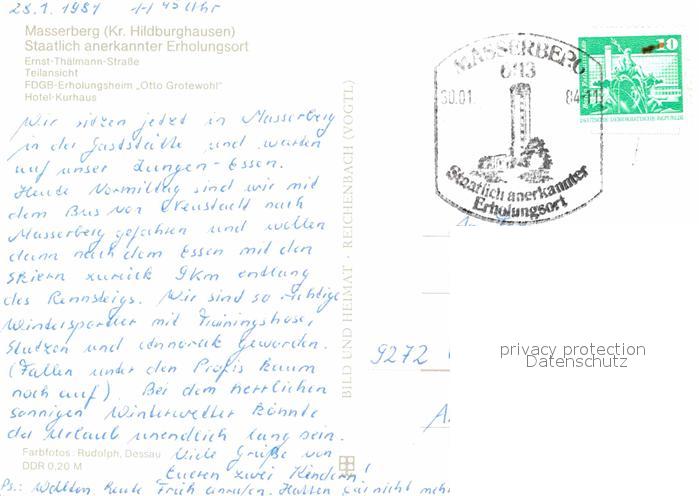 28.1.1981 11 45 Uhr
Masserberg (Kr. Hildburghausen)
Staatlich anerkannter Erholungsort
Ernst-Thälmann-Straße
Teilansicht
FDGB-Erholungsheim „Otto Grotewohl"
Hotel-Kurhaus
Wir sitzen jetzt in Masserberg
in der Gaststätte und warten
auf unser Zungen-Essen.
Heute Vormittag sind wir mit
dem Bus von Neustadt nach
Masserberg gefahren und wollen
dann nach dem Essen mit den
Skiern zurück 9km entlang
des Rennsteigs. Wir sind so richtige
Wintersportler mit Trainingshose,
Stutzen und Annorak geworden.
(Fallen unter den Profis kaum
noch auf). Bei dem herrlichen
sonnigen Winterwetter könnte
der Urlaub unendlich lang sein.
Viele Grüße von
Eueren zwei Kindern!
Ps.: Wollten heute Früh anrufen. Hatten nicht mehr
Farbfotos: Rudolph, Dessau
DDR 0,20 M
BILD UND HEIMAT · REICHENBACH (VOGTL)
MASSERBERG
6113
30.01. 84-11
Staatlich anerkannter
Erholungsort
10
DEUTSCHE DEMOKRATISCHE REPUBLIK
9272
privacy protection
Datenschutz